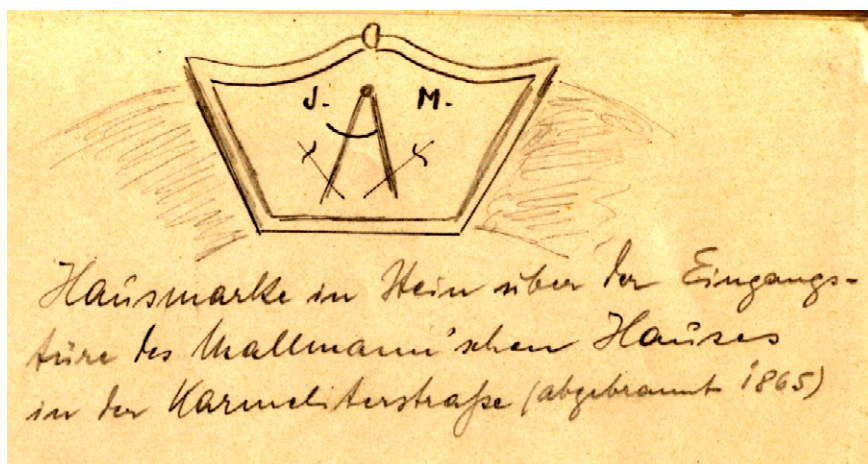 J. M.
Hausmarke in Stein über der Eingangs-
türe des Mallmann'schen Hauses
in der Karmeliterstraße (abgebrannt 1865)